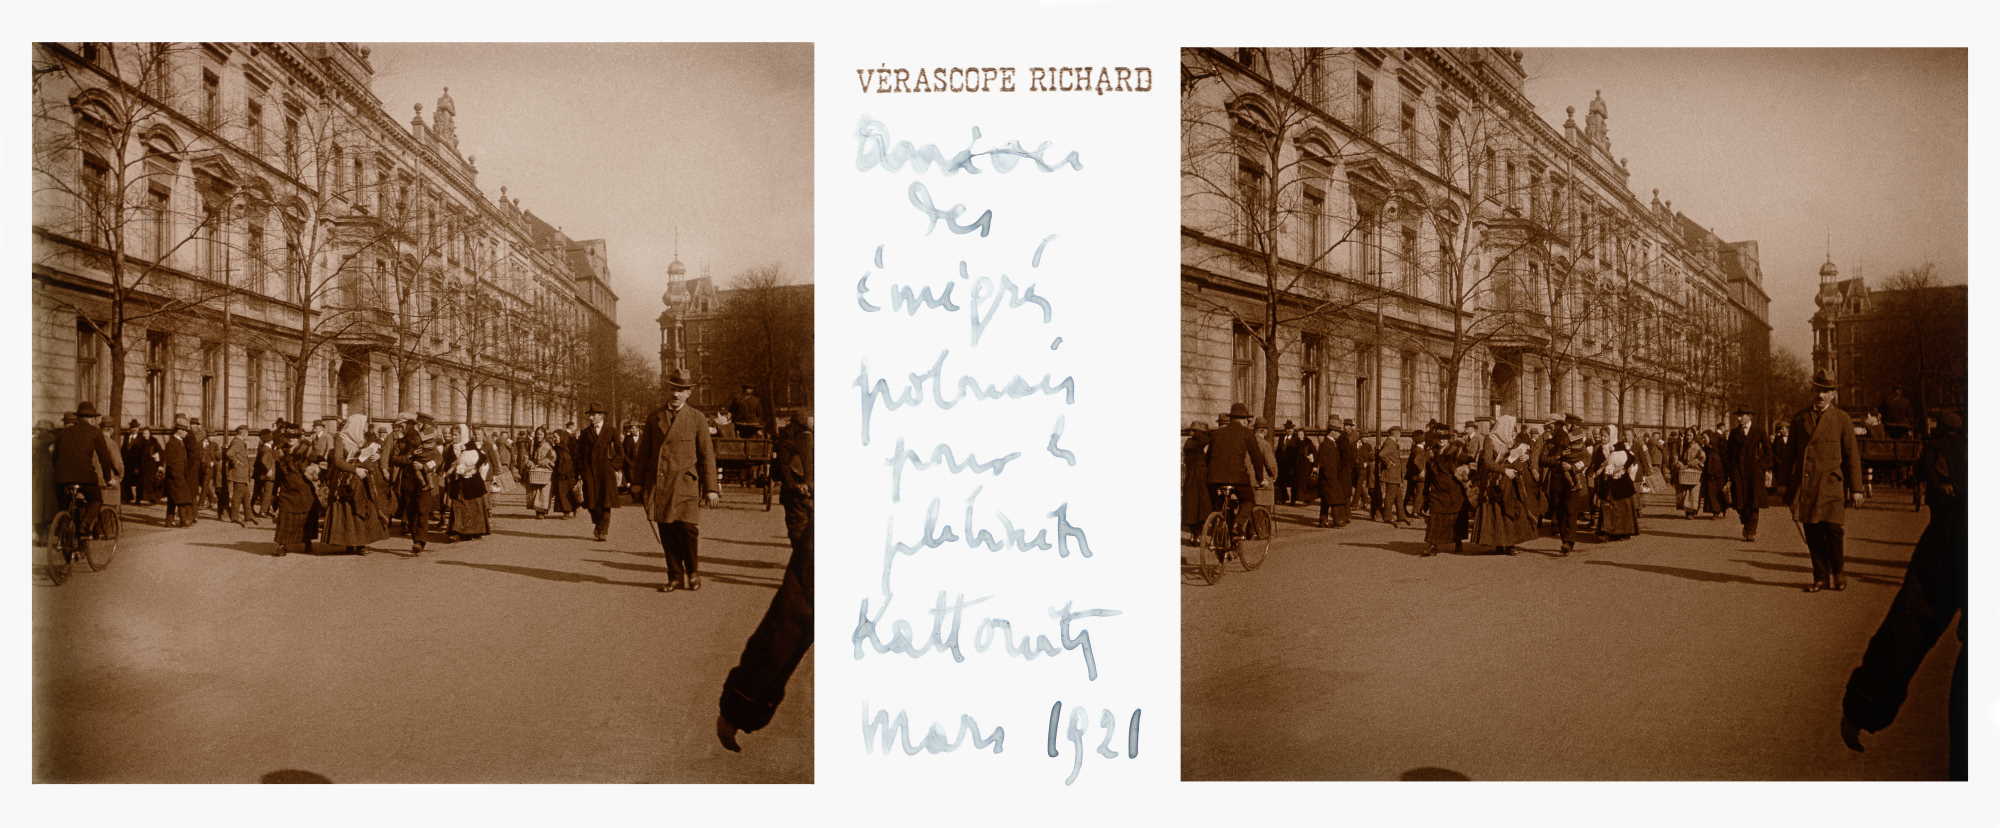 VÉRASCOPE RICHARD
des
émigrés
polonais
pour le
plébiscite
Kattowitz
Mars 1921